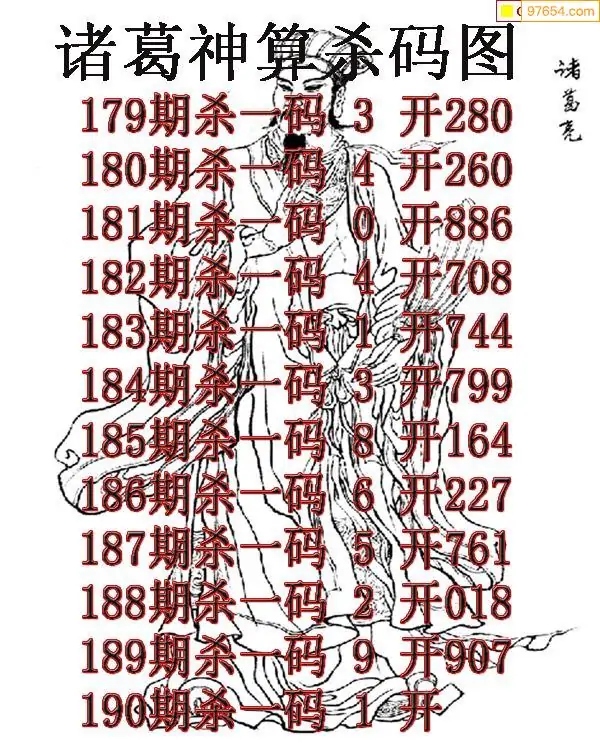 97654.com
诸葛神算杀码图
诸葛亮
179期杀一码 3 开280
180期杀一码 4 开260
181期杀一码 0 开886
182期杀一码 4 开708
183期杀一码 1 开744
184期杀一码 3 开799
185期杀一码 8 开164
186期杀一码 6 开227
187期杀一码 5 开761
188期杀一码 2 开018
189期杀一码 9 开907
190期杀一码 1 开